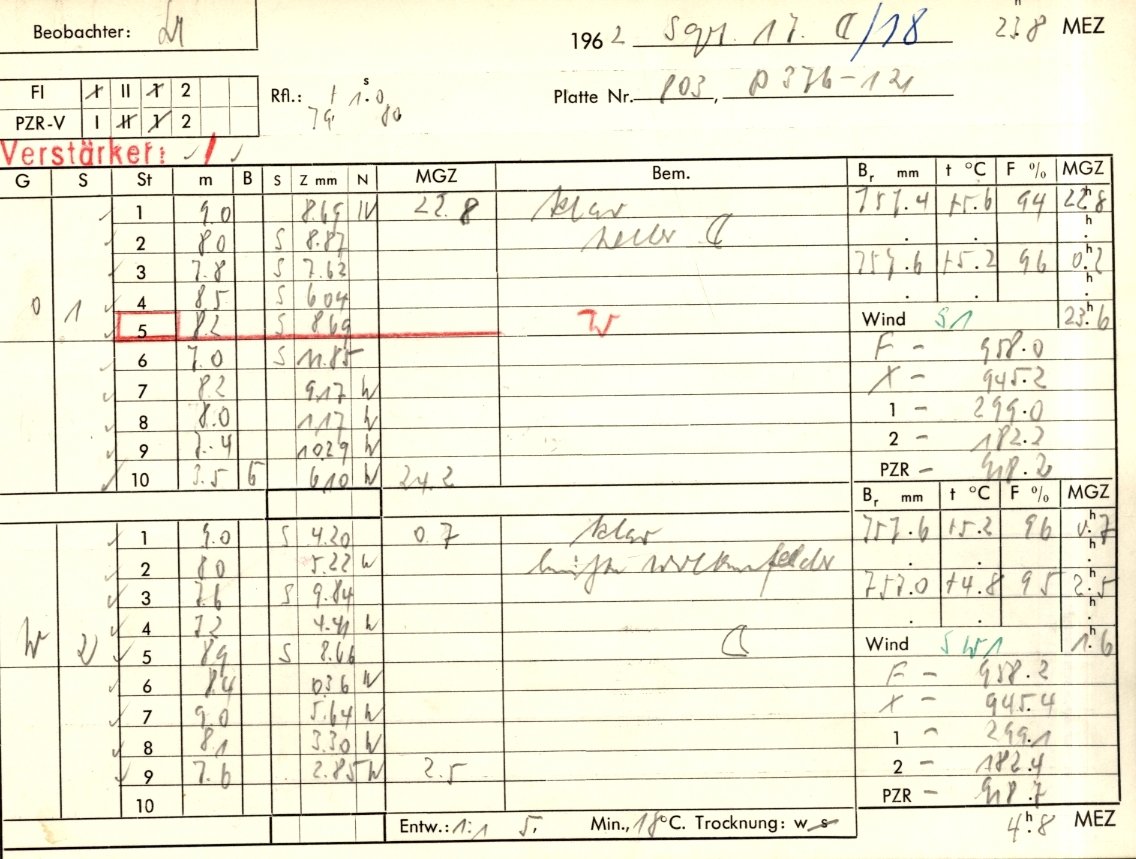 Beobachter:
196 2 Sept. 17. ☾/18 23.8 h MEZ
FI I II 1 2
PZR-V I II 1 2
Rfl.: + 1.0 s
79 80
Platte Nr. 803, P 376-121
Verstärker: /
G S St m B S Z mm N MGZ Bem. Br mm t °C F % MGZ
1 9.0 8.69 W 22.8 klar 757.4 +5.6 94 22.8 h
2 8.0 S 8.87 heller ☾
3 7.8 S 7.62 757.6 +5.2 96 0.2 h
0 1 4 8.5 S 6.04
5 8.2 S 8.69 W Wind S1 23.6 h
6 7.0 S 11.85 F - 958.0
7 8.2 9.17 W X - 945.2
8 8.0 1.17 W 1 - 299.0
9 7.4 10.29 W 2 - 182.2
10 3.5 6 6.10 W 24.2 PZR - 918.2
Br mm t °C F % MGZ
1 9.0 S 4.20 0.7 klar 757.6 +5.2 96 0.7 h
2 8.0 5.22 W Wolkenfelder
3 7.6 S 9.84 757.0 +4.8 95 2.5 h
W 2 4 7.2 4.41 W
5 8.9 S 8.66 ☾ Wind SW1 1.6 h
6 8.4 0.36 W F - 958.2
7 9.0 5.64 W X - 945.4
8 8.1 3.30 W 1 - 299.1
9 7.6 2.85 W 2.5 2 - 182.4
10 PZR - 918.7
Entw.: 1:1 5. Min., 18 °C. Trocknung: w s 4.8 h MEZ